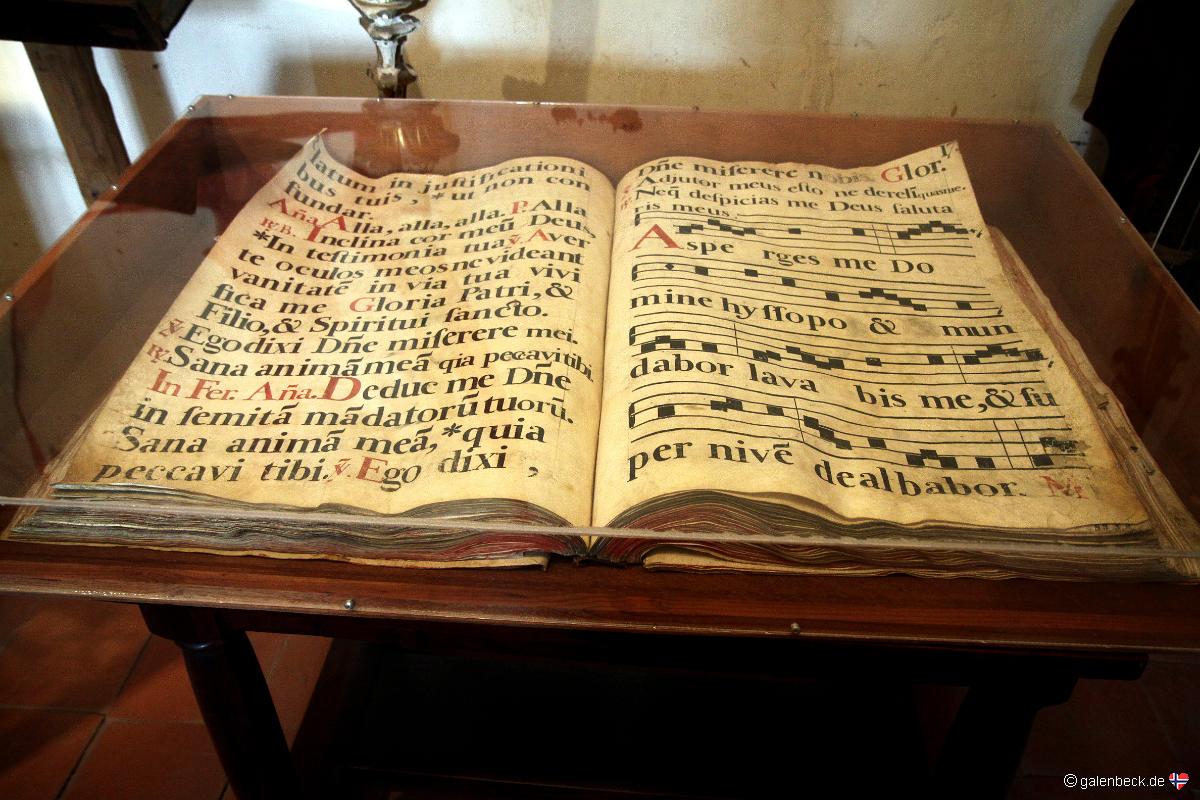 latum in juſtificationi
bus tuis, *ut non con
fundar.
Aña. Alla, alla, alla. P. Alla
℞. B. Ynclina cor meũ Deus
*In teſtimonia tua ℣. Aver
te oculos meos ne videant
vanitatẽ in via tua vivi
fica me Gloria Patri, &
Filio, & Spiritui ſancto.
℣. Ego dixi Dñe miſerere mei.
℞. Sana animã meã qia peccavi tibi.
In Fer. Aña. Deduc me Dñe
in ſemitã mãdatorũ tuorũ.
Sana animã meã, *quia
peccavi tibi. ℣. Ego dixi,
Dñe miſerere nobis. Glor.
Adjutor meus eſto ne derelĩquas me.
Neq̃ deſpicias me Deus ſaluta
ris meus.
Aspe rges me Do
mine hyſſopo & mun
dabor lava bis me, & ſu
per nivẽ dealbabor.
© galenbeck.de